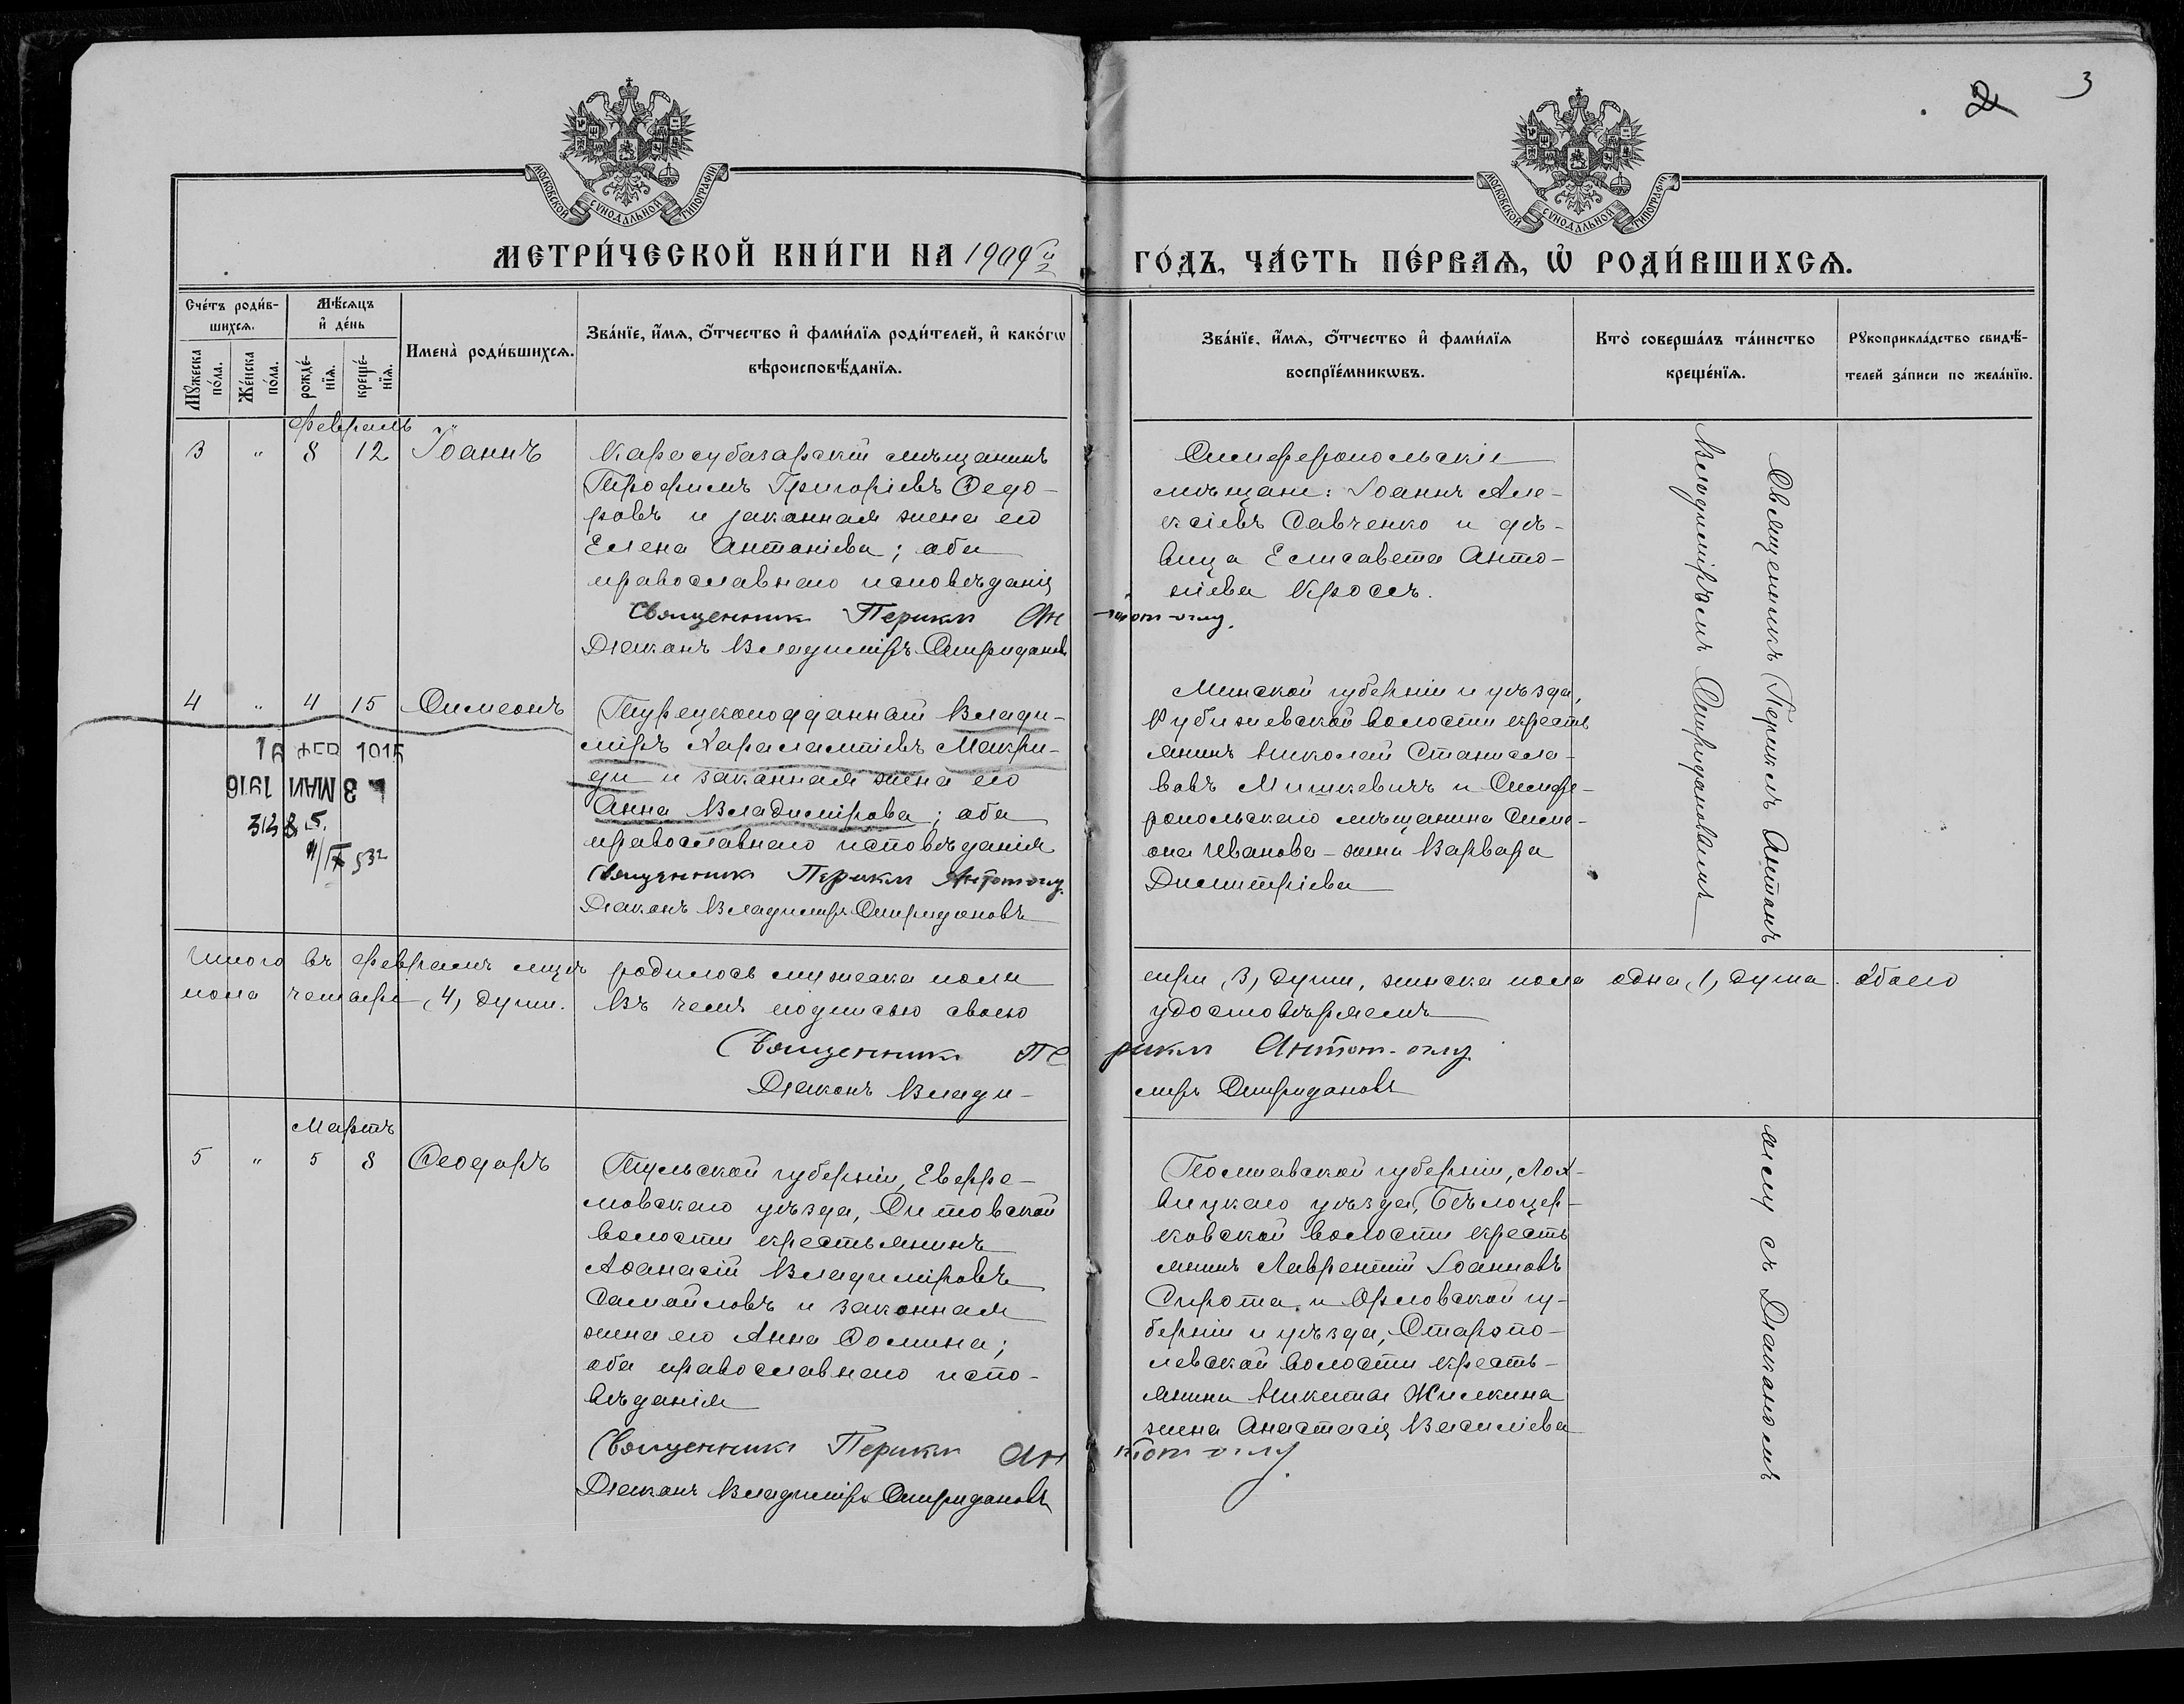 2 3
МОСКОВСКОЙ СѴНОДАЛЬНОЙ ТИПОГРАФІИ
МОСКОВСКОЙ СѴНОДАЛЬНОЙ ТИПОГРАФІИ
МЕТРИ́ЧЕСКОЙ КНИ́ГИ НА 1909й ГО́ДЪ, ЧА́СТЬ ПЕ́РВАѦ, Ѡ҆ РОДИ́ВШИХСѦ.
Сче́тъ роди́в-
шихсѧ.
Мꙋ́жеска по́ла.
Же́нска по́ла.
Мѣ́сѧцъ
и҆ де́нь
рожде́-нїѧ.
креще́-нїѧ.
Имена̀ роди́вшихсѧ.
Зва́нїе, и҆́мѧ, ѻ҆́тчество и҆ фами́лїѧ роди́телей, и҆ како́гѡ
вѣроисповѣ́данїѧ.
Зва́нїе, и҆́мѧ, ѻ҆́тчество и҆ фами́лїѧ
воспрїе́мникѡвъ.
Кто̀ соверша́лъ та́инство
креще́нїѧ.
Рꙋкоприкла́дство свидѣ́-
телей за́писи по жела́нїю.
Февраль
3 " 8 12 Іоаннъ
Карасубазарскій мѣщанинъ
Трофимъ Григоріевъ Ѳедо-
ровъ и законная жена его
Елена Антоніева; оба
православнаго исповѣданія
Священникъ Периклъ Антот-оглу.
Діаконъ Владиміръ Спиридоновъ
Симферопольскіе
мѣщане: Іоаннъ Але-
ксіевъ Савченко и дѣ-
вица Елисавета Анто-
ніева Кроссъ.
Священникъ Периклъ Антотъ
оглу съ Діакономъ
Владиміромъ Спиридоновымъ
4 " 4 15 Симеонъ
Турецкоподданный Влади-
міръ Харалампіевъ Макри-
ди и законная жена его
Анна Владимірова; оба
православнаго исповѣданія
Священникъ Периклъ Антотоглу.
Діаконъ Владиміръ Спиридоновъ
16 ФЕВ 1915
3 МАЙ 1916
Минской губерніи и уѣзда,
волости кресть
янинъ Николай Станисла-
вовъ Мишкевичъ и Симфе-
ропольскаго мѣщанина Симе-
она Иванова жена Варвара
Димитріева
Итого въ февралѣ мцѣ родилось мужеска пола три, 3, души, женска пола одна, 1, душа. обоего
пола четыре, 4, души. Въ чемъ подписью своею удостовѣряемъ
Священникъ Периклъ Антот-оглу
Діаконъ Владиміръ Спиридоновъ
Мартъ
5 " 5 8 Ѳеодоръ
Тульской губерніи, Ефре-
мовскаго уѣзда, Ситовской
волости крестьянинъ
Аѳанасій Владиміровъ
Самойловъ и законная
жена его Анна Ѳомина;
оба православнаго испо-
вѣданія
Священникъ Периклъ Антот-оглу.
Діаконъ Владиміръ Спиридоновъ
Полтавской губерніи, Лох-
вицкаго уѣзда, Бѣлоцер-
ковской волости кресть
янинъ Лаврентій Іоанновъ
Сирота и Орловской гу-
берніи и уѣзда, Старопо-
левской волости кресть-
янина Никиты Жилкина
жена Анастасія Василіева